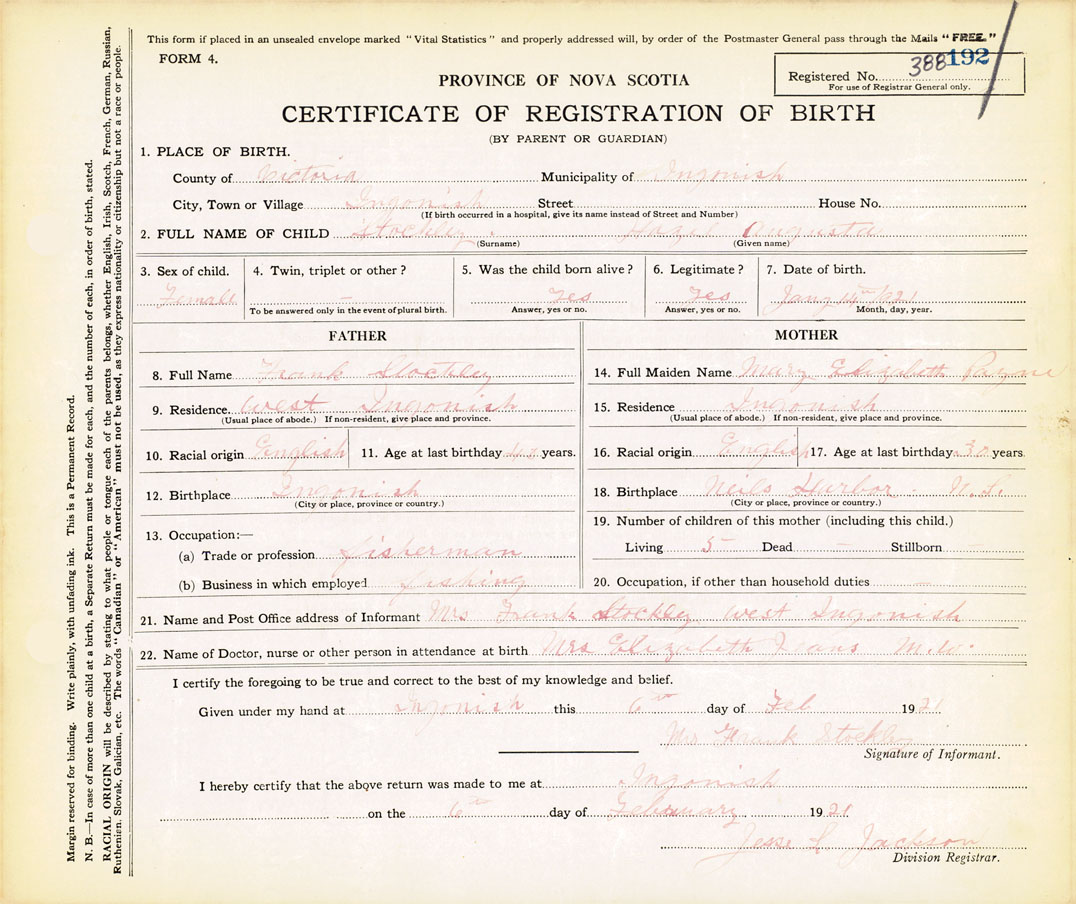 This form if placed in an unsealed envelope marked "Vital Statistics" and properly addressed will, by order of the Postmaster General pass through the Mails "FREE."
FORM 4.
388 192
Registered No.
For use of Registrar General only.
PROVINCE OF NOVA SCOTIA
CERTIFICATE OF REGISTRATION OF BIRTH
(BY PARENT OR GUARDIAN)
1. PLACE OF BIRTH.
County of Victoria Municipality of Ingonish
City, Town or Village Ingonish Street House No.
(If birth occurred in a hospital, give its name instead of Street and Number)
2. FULL NAME OF CHILD Stockley. Hazel Augusta
(Surname) (Given name)
3. Sex of child. 4. Twin, triplet or other? 5. Was the child born alive? 6. Legitimate? 7. Date of birth.
Female – Yes Yes Jany 14th 1921
To be answered only in the event of plural birth. Answer, yes or no. Answer, yes or no. Month, day, year.
FATHER
8. Full Name Frank Stockley
9. Residence West Ingonish
(Usual place of abode.) If non-resident, give place and province.
10. Racial origin English 11. Age at last birthday years.
12. Birthplace Ingonish
(City or place, province or country.)
13. Occupation:—
(a) Trade or profession fisherman
(b) Business in which employed fishing
MOTHER
14. Full Maiden Name Mary Elizabeth Payne
15. Residence Ingonish
(Usual place of abode.) If non-resident, give place and province.
16. Racial origin English 17. Age at last birthday 30 years
18. Birthplace Neils Harbor. N.S.
(City or place, province or country.)
19. Number of children of this mother (including this child.)
Living 5 Dead – Stillborn
20. Occupation, if other than household duties
21. Name and Post Office address of Informant Mrs Frank Stockley West Ingonish
22. Name of Doctor, nurse or other person in attendance at birth Mrs Elizabeth M.W.
I certify the foregoing to be true and correct to the best of my knowledge and belief.
Given under my hand at Ingonish this 6th day of Feb 1921
Mrs Frank Stockley
Signature of Informant.
I hereby certify that the above return was made to me at Ingonish
on the 6th day of February 1921
Jesse L Jackson
Division Registrar.
Margin reserved for binding. Write plainly, with unfading ink. This is a Permanent Record.
N. B.—In case of more than one child at a birth, a Separate Return must be made for each, and the number of each, in order of birth, stated.
RACIAL ORIGIN will be described by stating to what people or tongue each of the parents belongs, whether English, Irish, Scotch, French, German, Russian,
Ruthenian, Slovak, Galician, etc. The words "Canadian" or "American" must not be used, as they express nationality or citizenship but not a race or people.